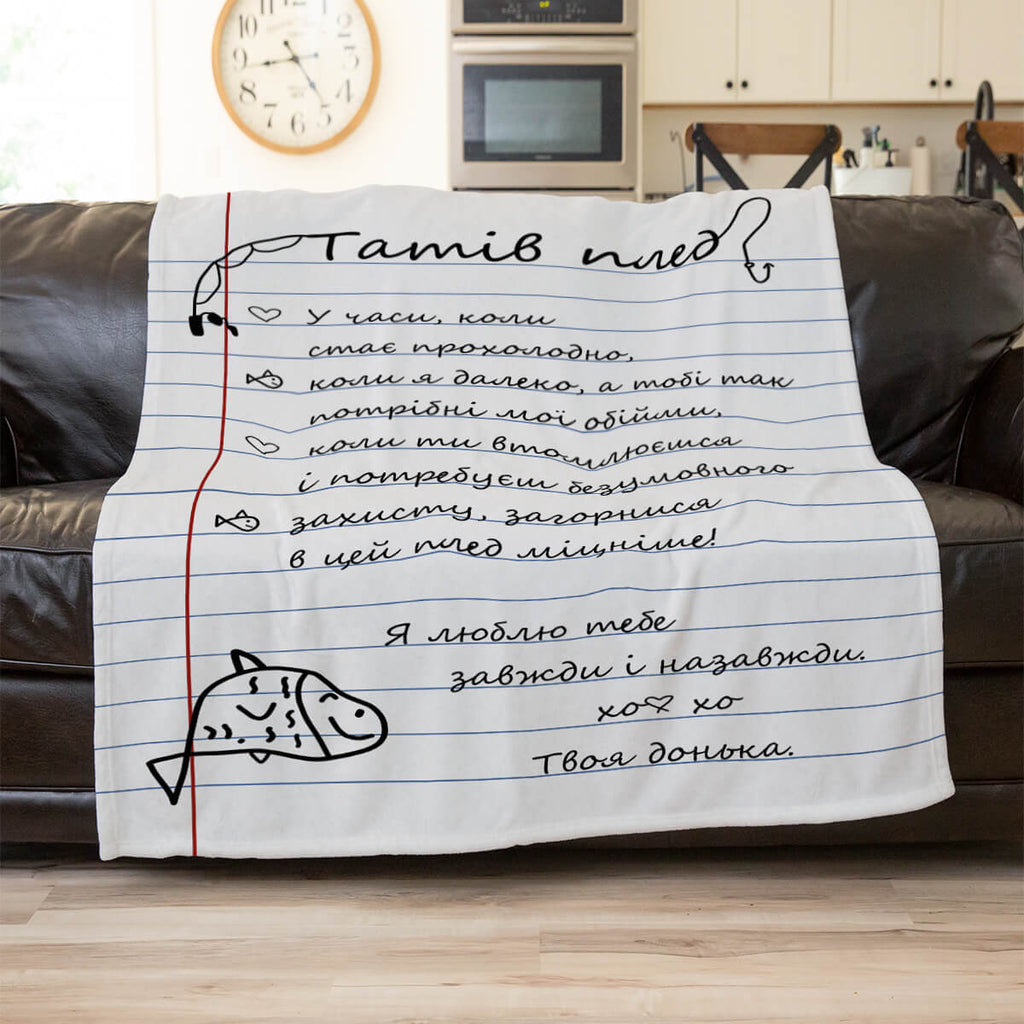 Татів плед
У часи, коли
стає прохолодно,
коли я далеко, а тобі так
потрібні мої обійми,
коли ти втомлюєшся
і потребуєш безумовного
захисту, загорнися
в цей плед міцніше!
Я люблю тебе
завжди і назавжди.
хо хо
Твоя донька.